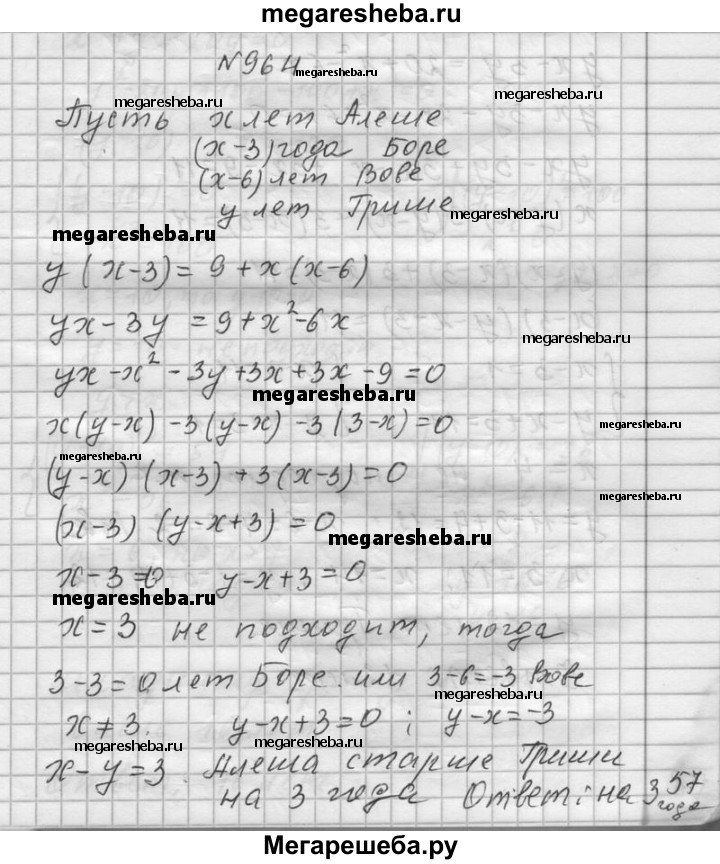 megaresheba.ru
№964
megaresheba.ru
megaresheba.ru
megaresheba.ru
Пусть x лет Алеше
(x-3) года Боре
(x-6) лет Вове
y лет Грише
megaresheba.ru
megaresheba.ru
y(x-3) = 9+x(x-6)
yx-3y = 9+x²-6x
megaresheba.ru
yx-x²-3y+3x+3x-9=0
megaresheba.ru
x(y-x)-3(y-x)-3(3-x)=0
megaresheba.ru
megaresheba.ru
(y-x)(x-3)+3(x-3)=0
megaresheba.ru
(x-3)(y-x+3)=0
megaresheba.ru
x-3=0 y-x+3=0
megaresheba.ru
x=3 не подходит, тогда
3-3=0 лет Боре. или 3-6=-3 Вове
megaresheba.ru
x≠3. y-x+3=0; y-x=-3
megaresheba.ru
megaresheba.ru
x-y=3. Алеша старше Гриши
на 3 года Ответ: на 3 года
57
Мегарешеба.ру